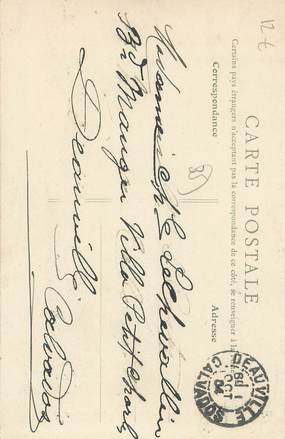 12 €
CARTE POSTALE
Certains pays étrangers n'acceptant pas la correspondance de ce côté, se renseigner à la
Correspondance
Adresse
Madame
Bd Mauger Villa Petit
Deauville
Calvados
DEAUVILLE
OCT
04
CALVADOS